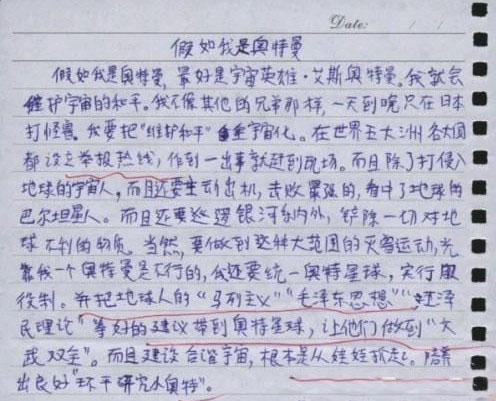 Date: / /
假如我是奥特曼
假如我是奥特曼,最好是宇宙英雄·艾斯奥特曼。我就会
维护宇宙的和平。我不像其他的兄弟那样,一天到晚只在日本
打怪兽。我要把"维护和平"宇宙化。在世界五大洲各大国
都设立举报热线,作到一出事就赶到现场。而且除了打侵入
地球的宇宙人,而且还要主动出机,击败最强的,看中了地球的
巴尔坦星人。而且还要巡逻银河系内外,铲除一切对地
球不利的物质。当然,要做到这种大范围的灭害运动,光
靠我一个奥特曼是不行的,我还要统一奥特星球,实行服
役制。并把地球人的"马列主义""毛泽东思想""江泽
民理论"等好的建议带到奥特星球,让他们做到"文
武双全"。而且建设合谐宇宙,根本是从娃娃抓起。培养
出良好"环干研究小奥特"。